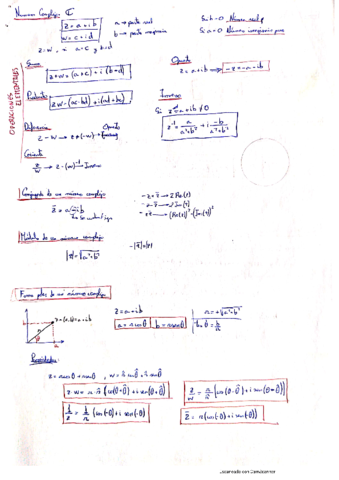 Numeros Complejos ℂ
z = a + ib
w = c + id
a → parte real
b → parte imaginaria
Si b = 0 Número real
Si a = 0 Número imaginario puro
z = w a = c y b = d
OPERACIONES ELEMENTALES
Suma
z + w = (a + c) + i (b + d)
Opuesto
z = a + ib → -z = -a - ib
Producto
z·w = (ac - bd) + i (ad + bc)
Inverso
Si z = a + ib ≠ 0
z⁻¹ = a/(a² + b²) + i -b/(a² + b²)
Diferencia
Opuesto
z - w → z + (-w)
Cociente
z/w → z · (w)⁻¹ → Inverso
Conjugado de un número complejo
z̄ = a - ib
- z + z̄ → 2 Re(z)
- z - z̄ → 2 Im(z)
- z·z̄ → (Re(z))² + (Im(z))²
Módulo de un número complejo
|z| = √a² + b²
- |z̄| = |z|
Forma polar de un número complejo
z = (a, b) = a + ib
z = a + ib
a = r cos θ
b = r sen θ
r = √a² + b²
Propiedades
z·w = r · r̂ (cos(θ + θ̂) + i sen(θ + θ̂))
z/w = r/r̂ (cos(θ - θ̂) + i sen(θ - θ̂))
1/z = 1/r (cos(-θ) + i sen(-θ))
z̄ = r(cos(-θ) + i sen(-θ))
Escaneado con CamScanner